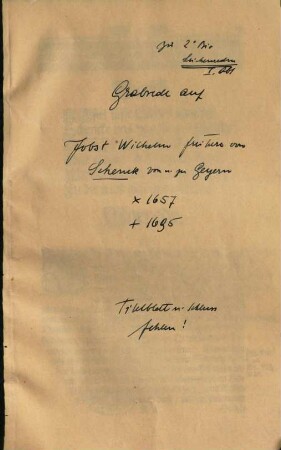 zu 2° Bio
Leichenreden
Grabrede auf
Jobst Wilhelm Freiherrn von
Schenck von u. zu Geyern
× 1657
+ 1695
Titelblatt u. Schluss
fehlen!